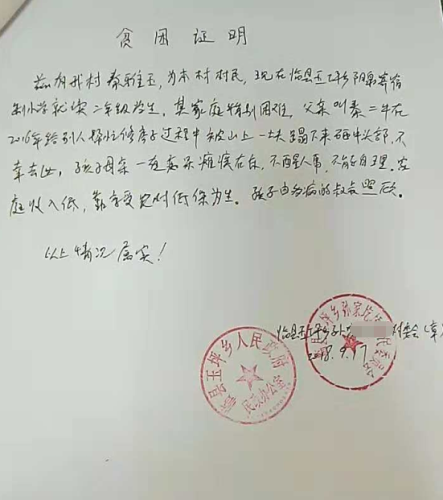 贫困证明
兹有我村秦雅玉,为本村村民,现在临县玉坪乡阳 寄宿
制小学就读二年级学生,其家庭特别困难,父亲叫秦二牛在
2016年给别人 修房子过程中被山上一块 塌下来砸中头部,不
幸去世,孩子母亲一直 疾在身,不醒人事,不能自理,家
庭收入低,靠享受农村低保为生。孩子由多病的叔 照顾。
以上情况属实!
临县玉坪乡孙 村委会(章)
2018.9.17
临县玉坪乡人民政府
民政办公室
玉坪乡孙家圪